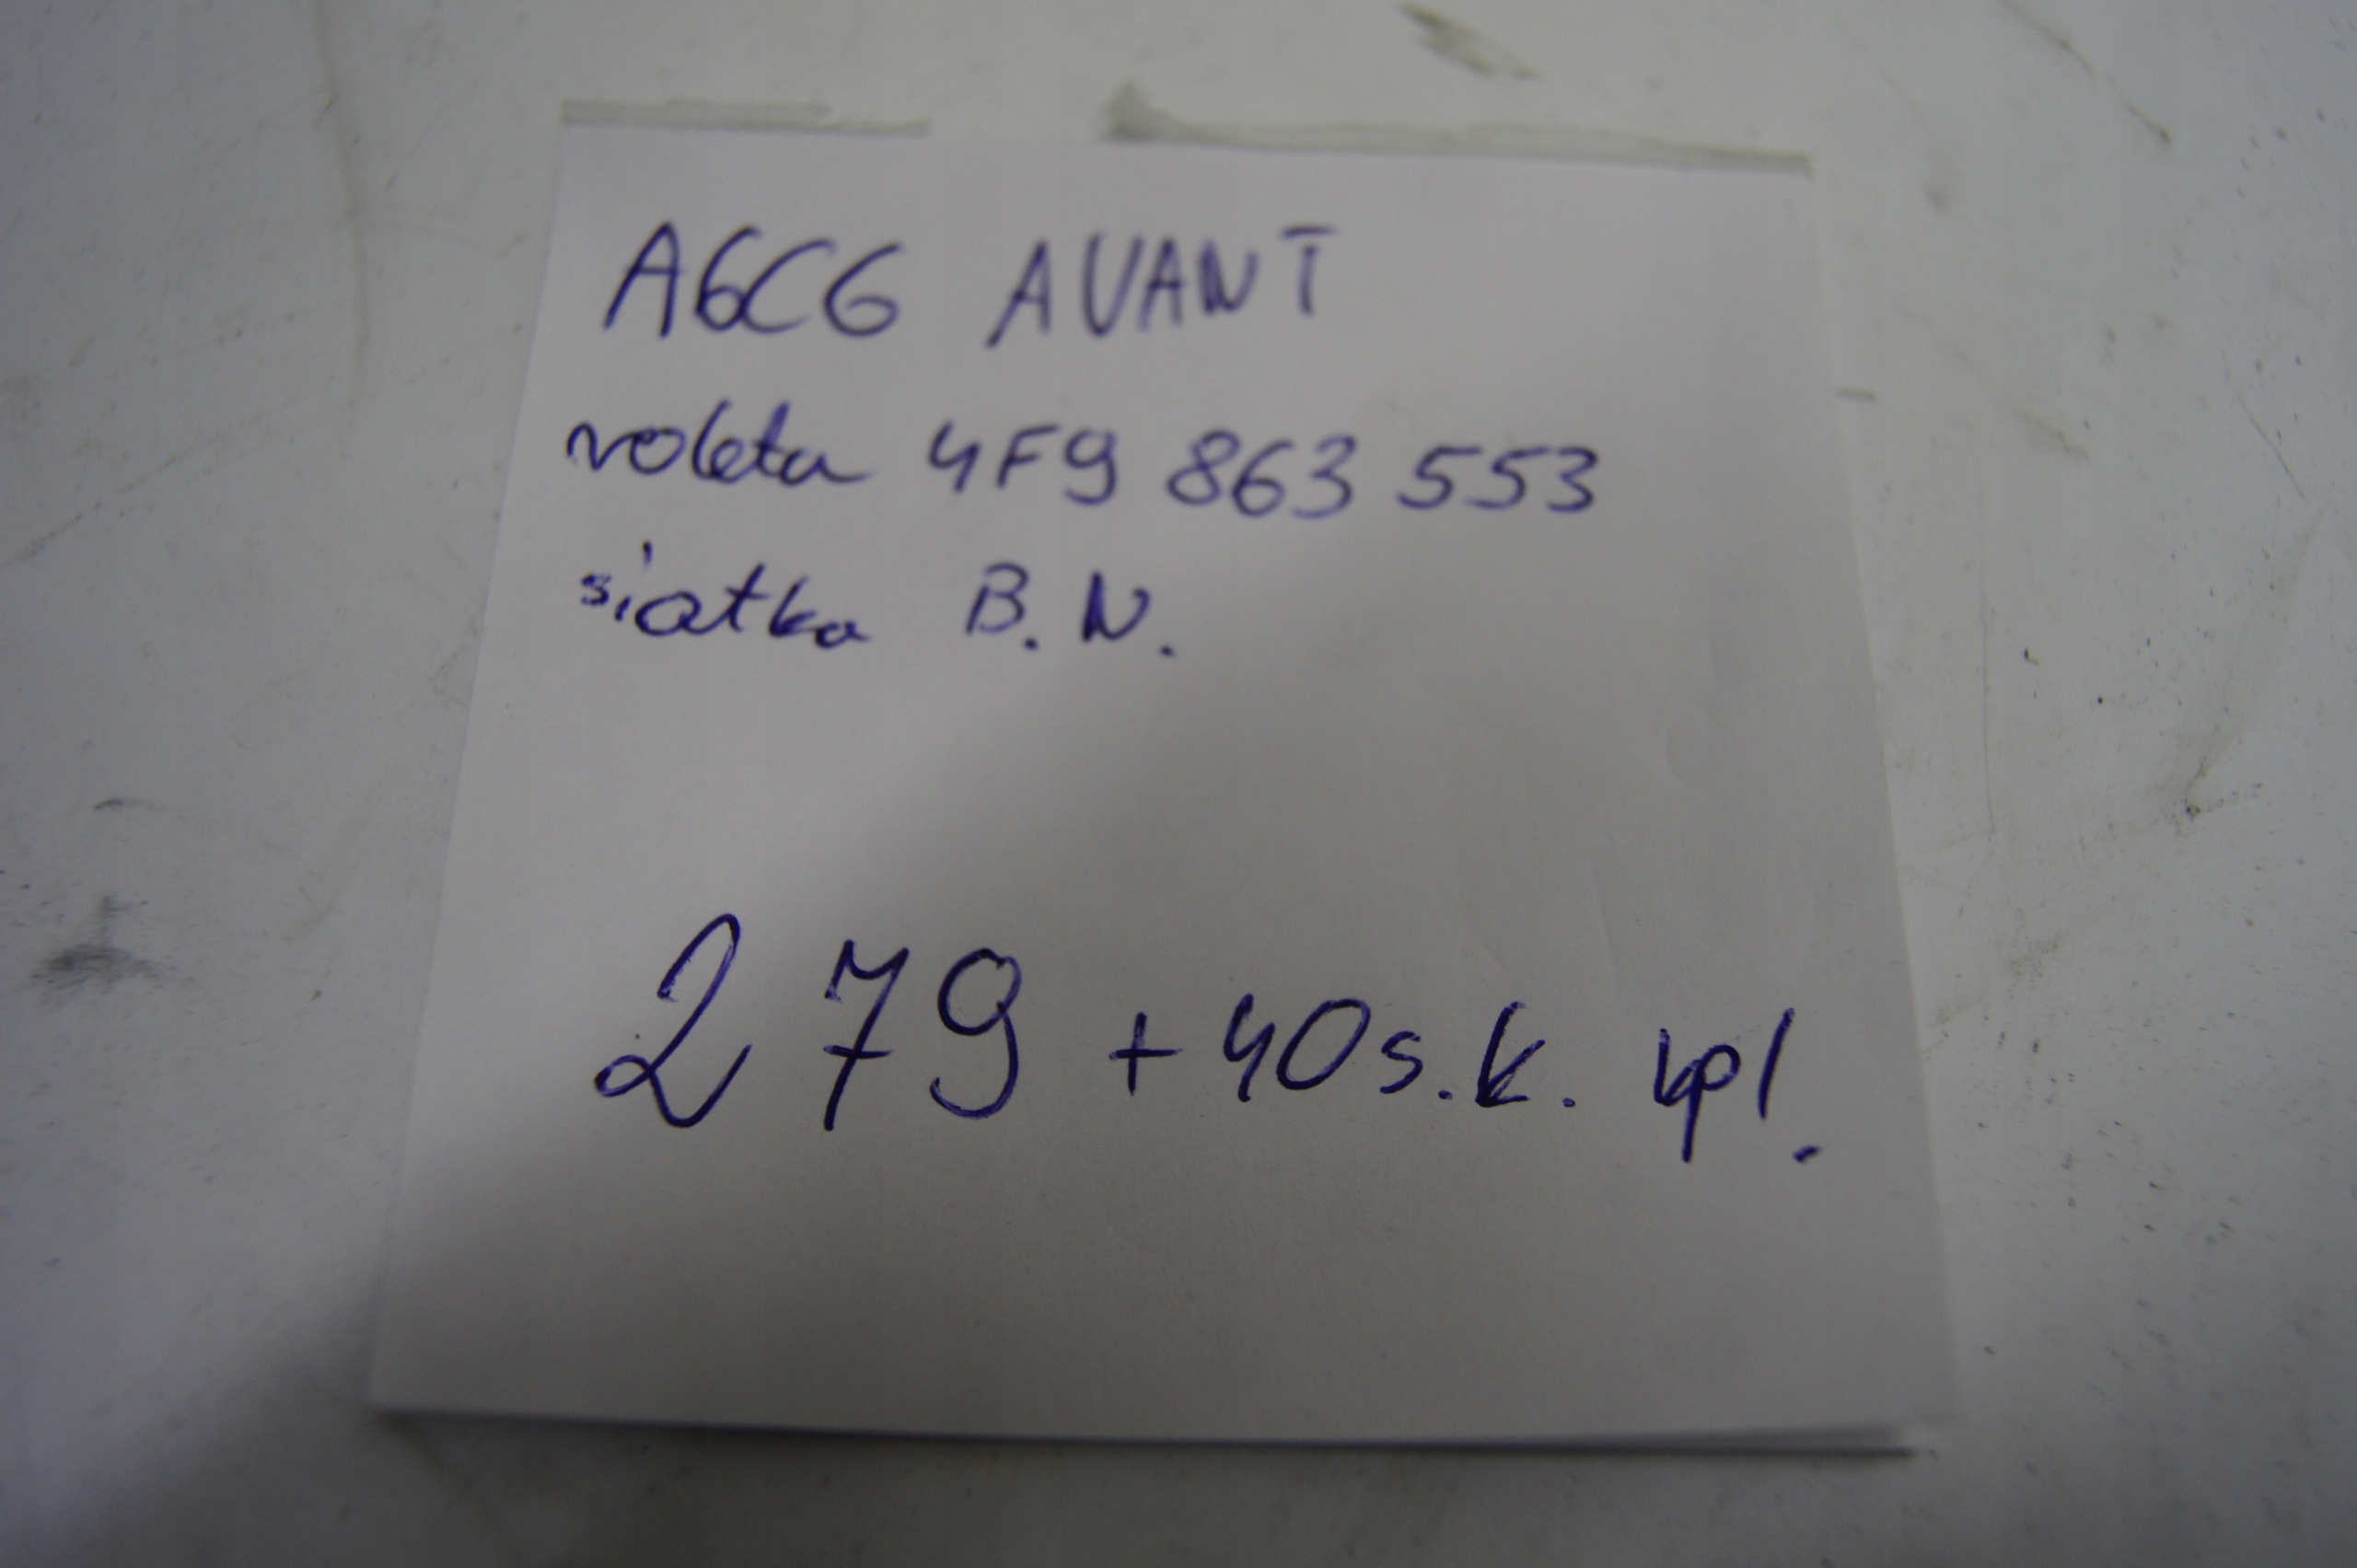 A6C6 AVANT
roleta 4F9 863 553
siatka B.N.
279 + 40 s.k. kpl.